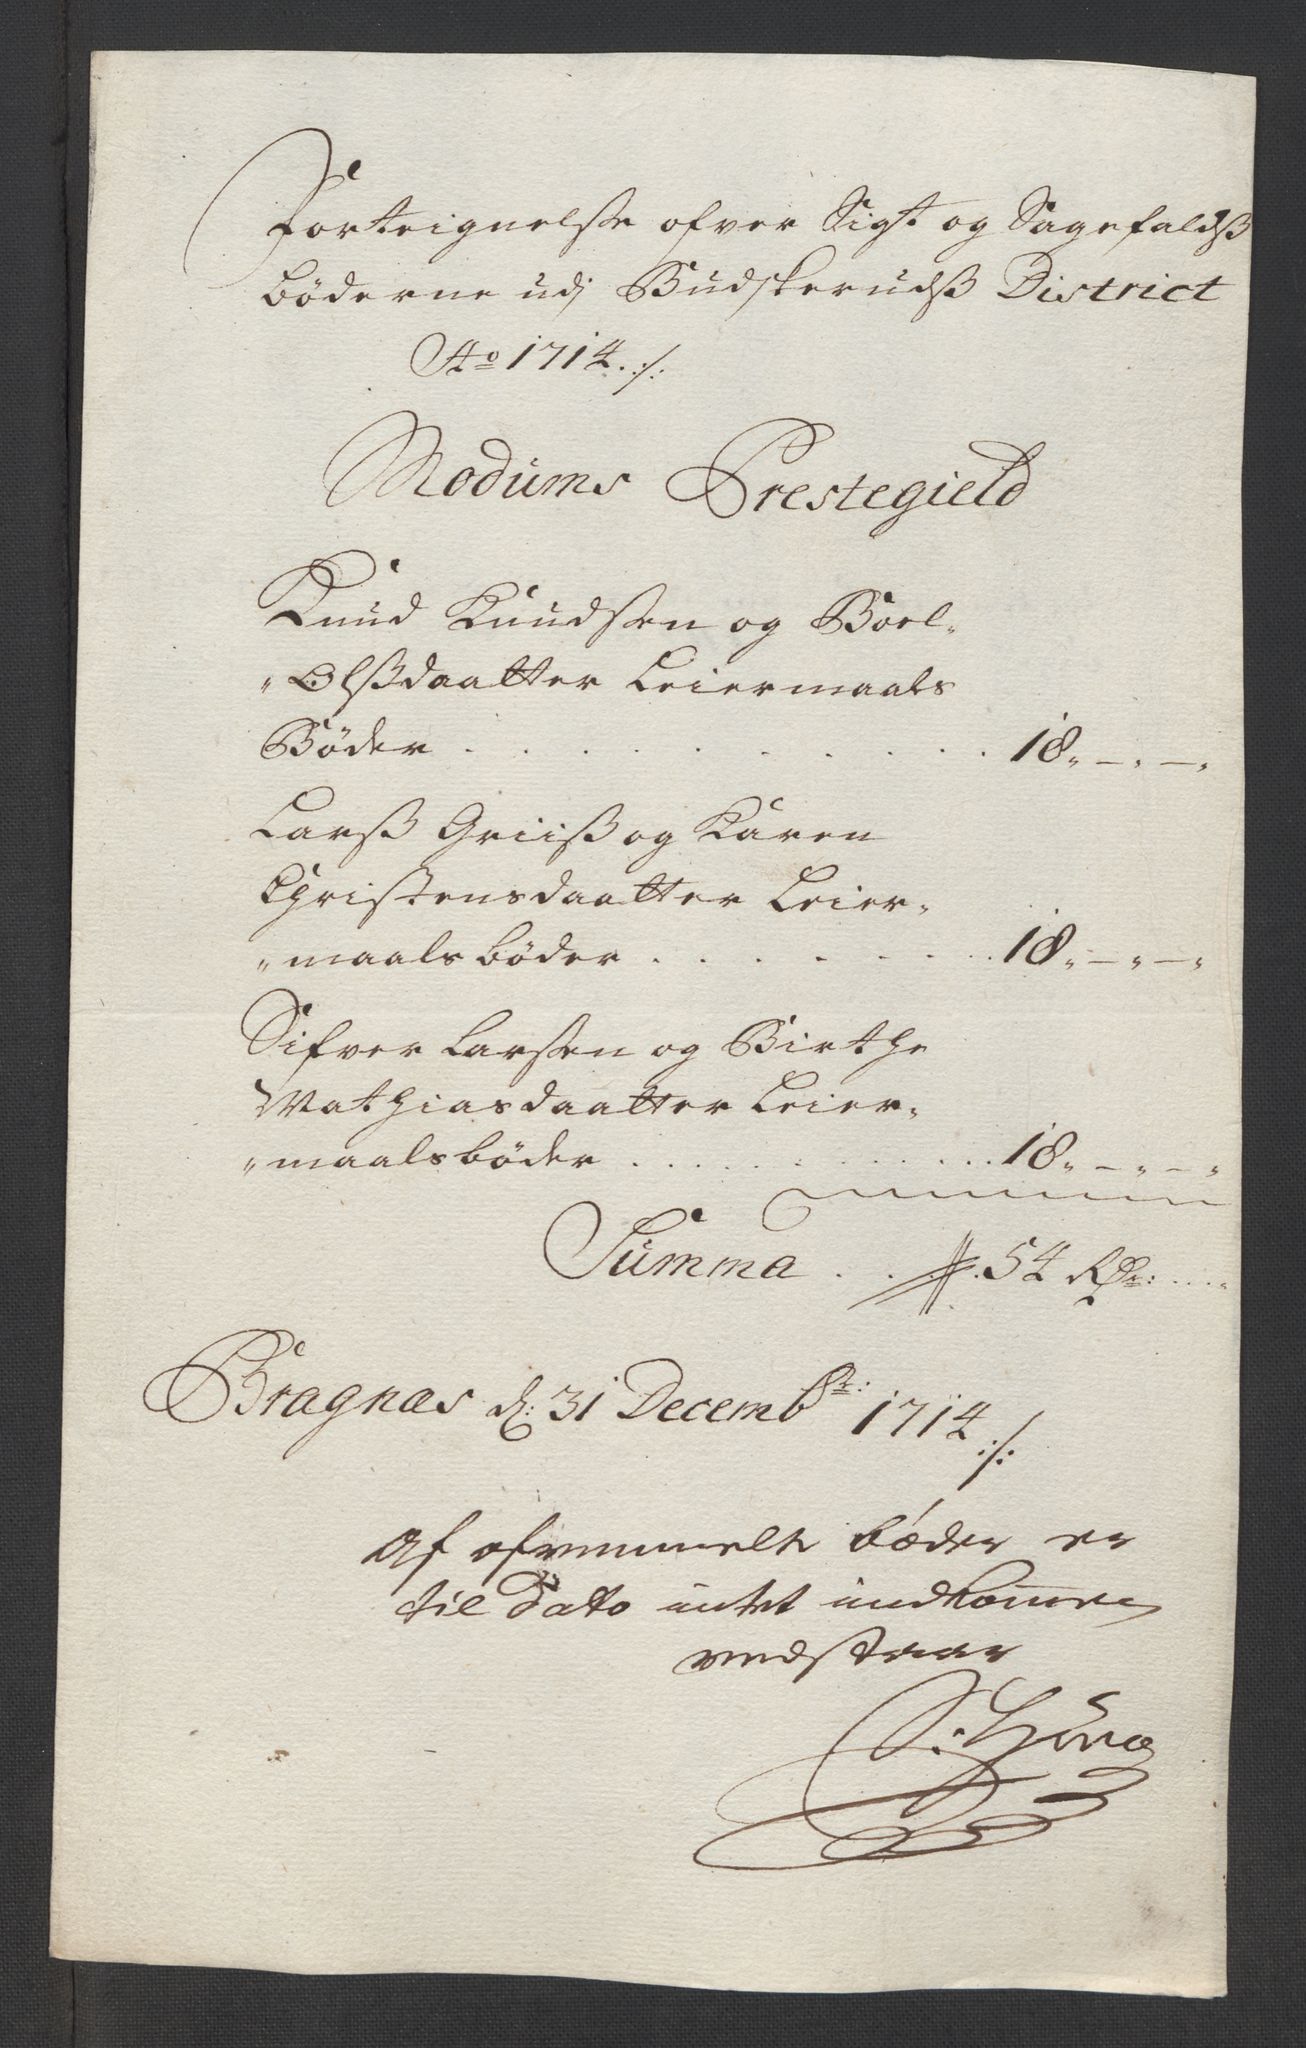 Forteignelse ofver Sigt og Sagefaldsß
bøderne udj Budskerudß District
Ao 1714 ./.
Modums Prestegield
Knud Knudssen og Boel
" Olßdaatter Leiermaals
Bøder . . . . . . . . . . 18 " — " — "
Larß Griiß og Karen
Christensdaatter Leier"
" maals bøder . . . . . . . 18 " — " — "
Sifver Larssen og Birthe
Mathiasdaatter Leier"
" maalsbøder . . . . . . . . . 18 " — " — "
Summa . . . 54 Rdr:
Bragnæs d: 31 Decembr: 1714 ./.
Af ofvenmelte bøder er
til Dato intet indkommen
vedstaar